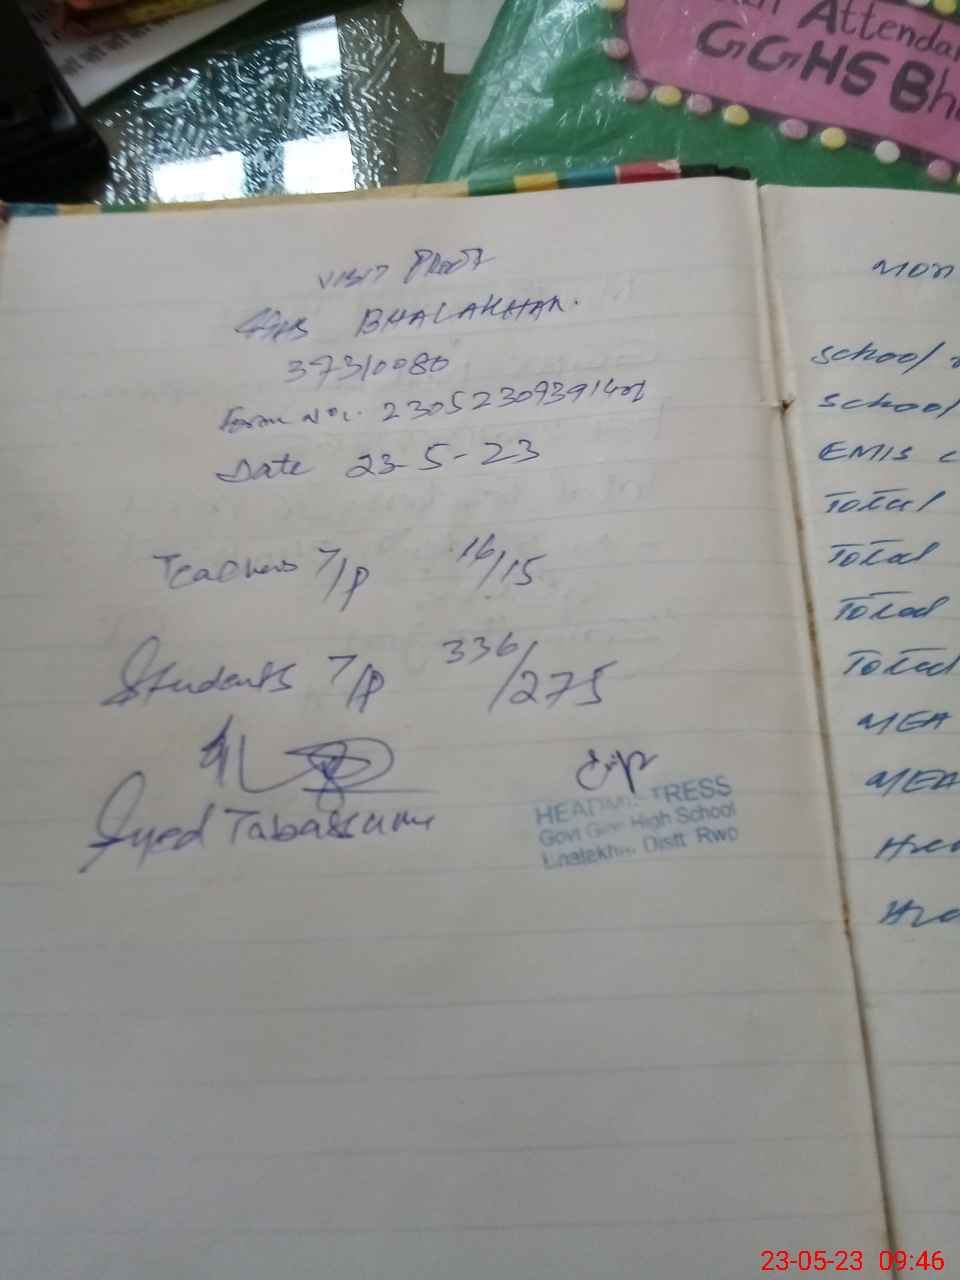 Attendan
GGHS Bh
VISIT Proof
BHALAKHAR.
37310080
Form No:. 230523093914
Date 23-5-23
Teachers T/P 16/15
Students T/P 336/275
Syed Tabassum
HEADMISTRESS
Govt High School
Distt Rwp
Mon
School
School
EMIS C
Total
Total
Total
Total
MEA
MEA
23-05-23 09:46